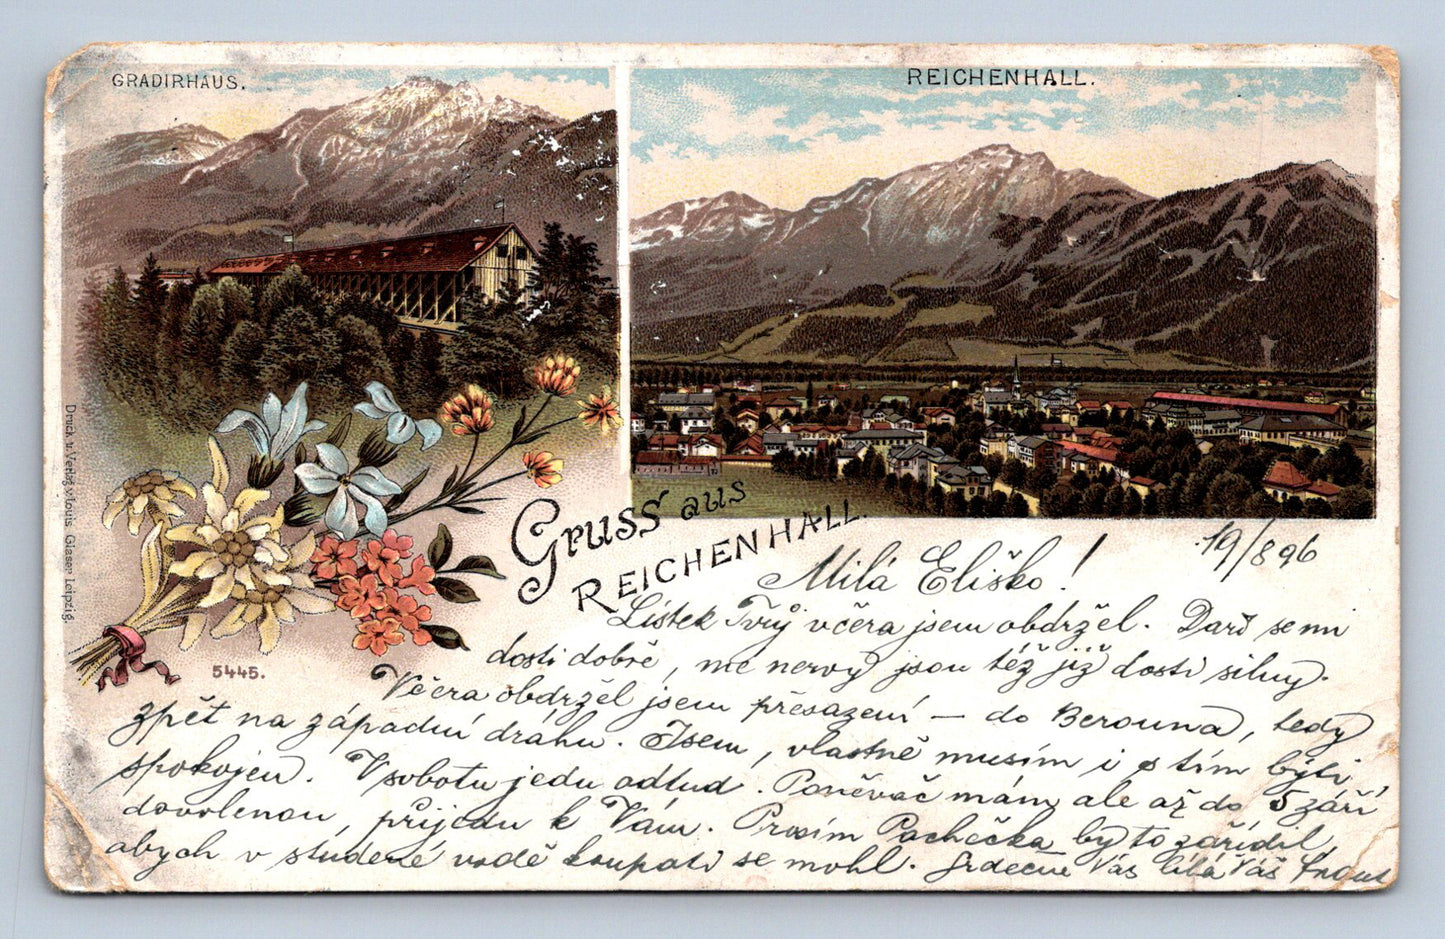 GRADIRHAUS.
REICHENHALL.
Druck u. Verlag v. Louis Glaser Leipzig.
5445.
Gruss aus
REICHENHALL.
19/8 96
Milá Eliško!
Lístek Tvůj včera jsem obdržel. Daří se mi
dosti dobře, mé nervy jsou též již dosti silny.
Včera obdržel jsem přesazení — do Berouna, tedy
zpět na západní dráhu. Jsem, vlastně musím i s tím býti
spokojen. V sobotu jedu odtud. Poněvač mám ale až do 5 září
dovolenou, přijedu k Vám. Prosím Pachečka by to zařídil,
abych v studené vodě koupati se mohl. Srdečně Vás líbá Váš